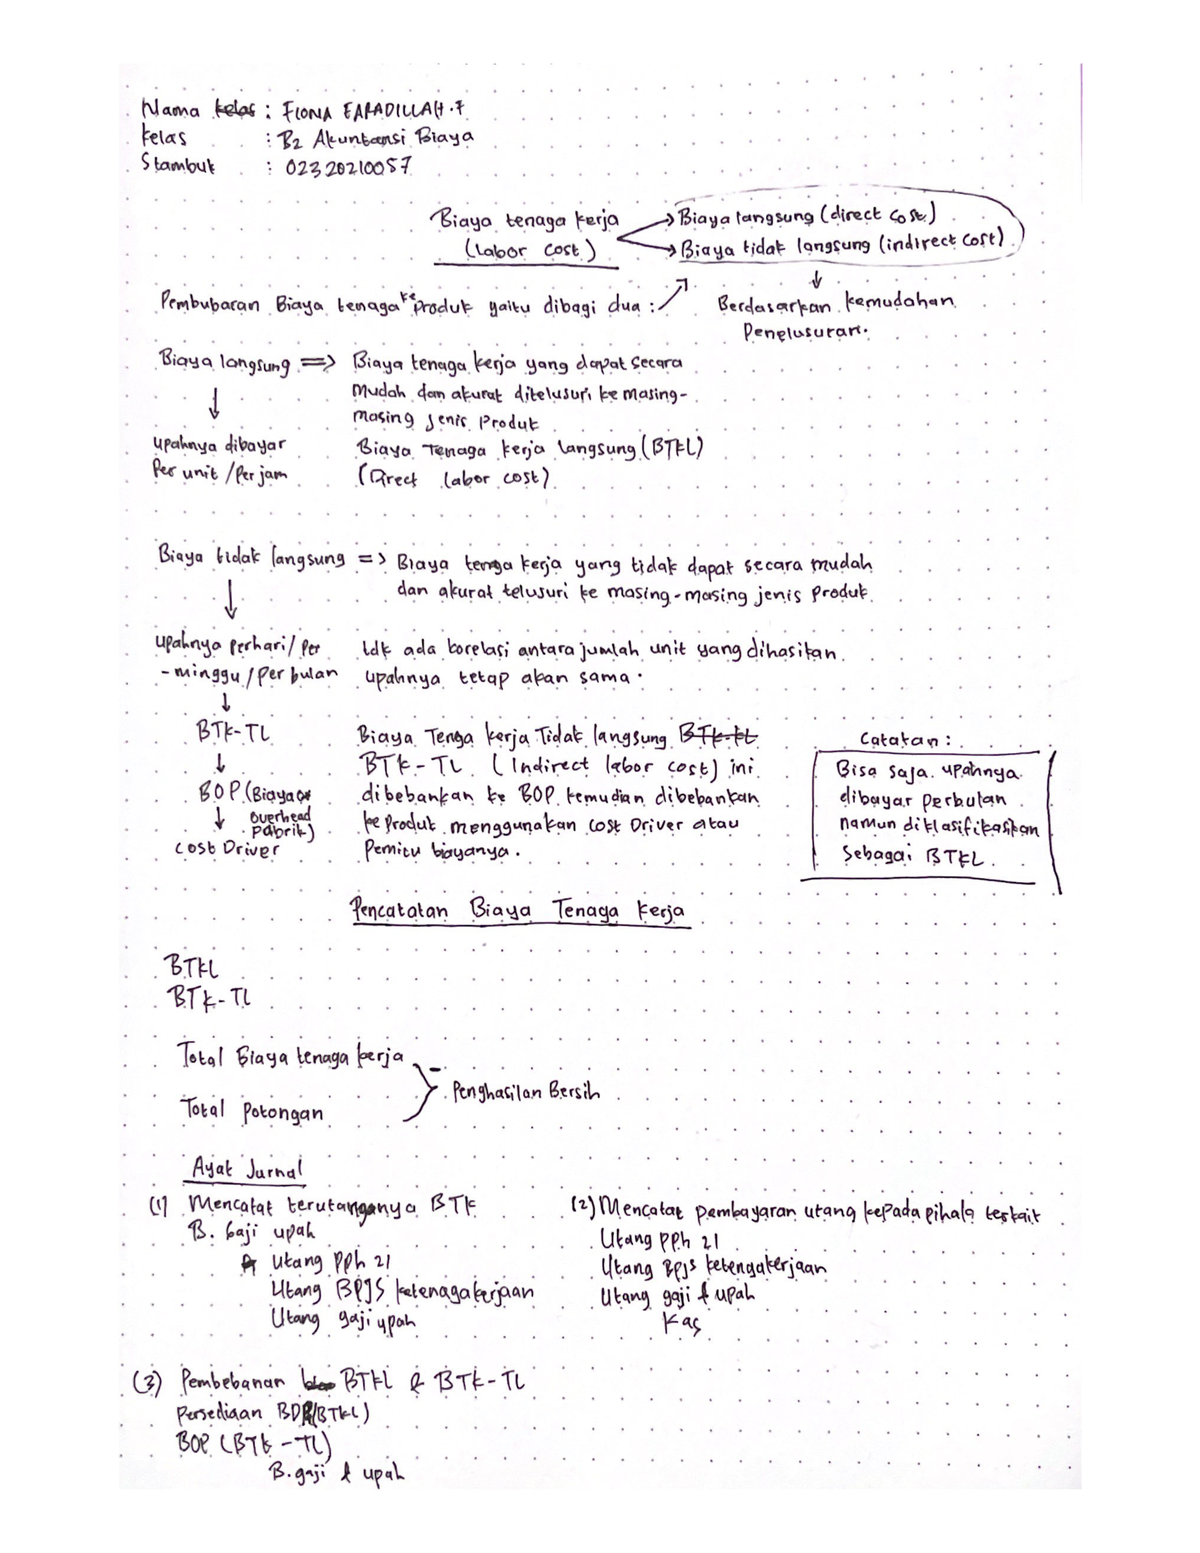 Nama kelas : FIONA FARADILLAH.F
Kelas : B2 Akuntansi Biaya
Stambuk : 02320210057
Biaya tenaga kerja → Biaya langsung (direct cost)
(Labor cost) → Biaya tidak langsung (indirect cost)
Pembubaran Biaya tenaga ke produk yaitu dibagi dua : ↗ Berdasarkan kemudahan
Penelusuran.
Biaya langsung => Biaya tenaga kerja yang dapat secara
↓ mudah dan akurat ditelusuri ke masing-
masing jenis produk
upahnya dibayar Biaya Tenaga kerja langsung (BTKL)
Per unit / Per jam (Direct labor cost)
Biaya tidak langsung => Biaya tenga kerja yang tidak dapat secara mudah
↓ dan akurat telusuri ke masing-masing jenis produk
upahnya perhari / Per tdk ada korelasi antara jumlah unit yang dihasilkan
- minggu / Per bulan upahnya tetap akan sama.
↓
BTK-TL Biaya Tenga kerja Tidak langsung BTK-tL
↓ BTK-TL (Indirect labor cost) ini
BOP (Biaya dibebankan ke BOP kemudian dibebankan
↓ overhead pabrik) ke produk menggunakan cost Driver atau
cost Driver Pemicu biayanya.
Catatan :
Bisa saja upahnya
dibayar perbulan
namun diklasifikasikan
sebagai BTKL.
Pencatatan Biaya Tenaga Kerja
BTKL
BTK-TL
Total Biaya tenaga kerja
- Penghasilan Bersih
Total potongan
Ayat Jurnal
(1) Mencatat terutanganya BTK
B. Gaji upah
Utang PPh 21
Utang BPJS ketenagakerjaan
Utang gaji upah
(2) Mencatat pembayaran utang kepada pihak terkait
Utang PPh 21
Utang BPJS ketengakerjaan
Utang gaji & upah
Kas
(3) Pembebanan BTKL & BTK-TL
Persediaan BDP (BTKL)
BOP (BTK-TL)
B. gaji & upah